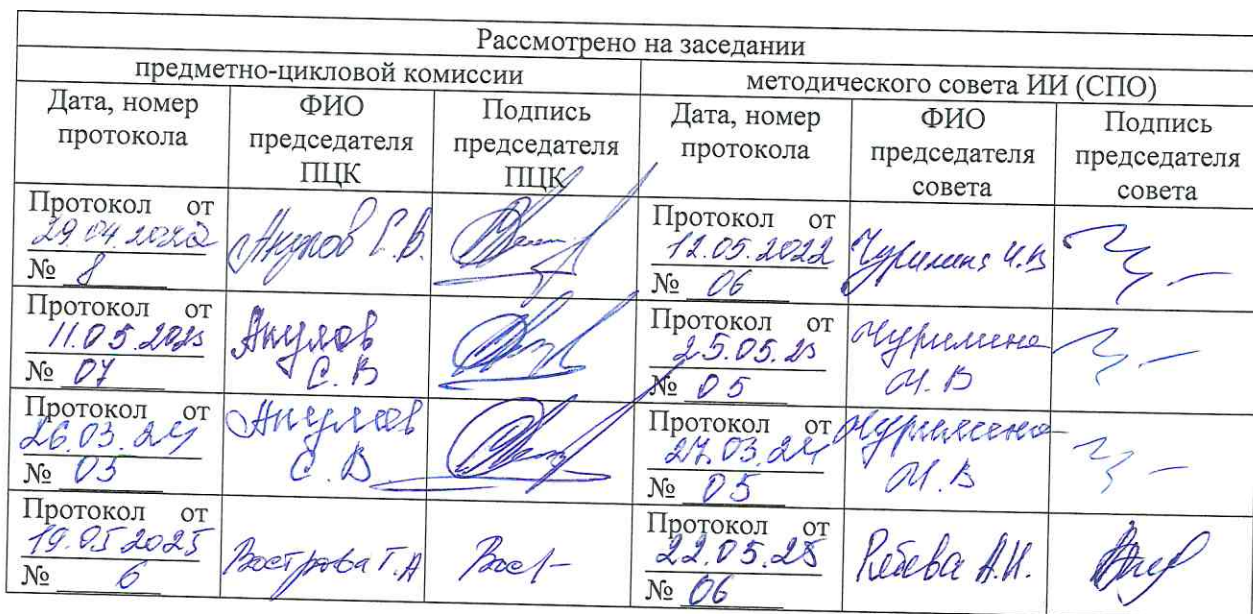 Рассмотрено на заседании
предметно-цикловой комиссии методического совета ИИ (СПО)
Дата, номер протокола
ФИО председателя ПЦК
Подпись председателя ПЦК
Дата, номер протокола
ФИО председателя совета
Подпись председателя совета
Протокол от
29.04.2022
№ 8
Акулов С.В.
Протокол от
12.05.2022
№ 06
Чурилина И.В
Протокол от
11.05.2023
№ 07
Акулов
С. В
Протокол от
25.05.23
№ 05
Чурилина
И. В
Протокол от
26.03.24
№ 03
Акулов
С. В
Протокол от
27.03.24
№ 05
Чурилина
И. В
Протокол от
19.05.2025
№ 6
Вострова Т.А
Протокол от
22.05.25
№ 06
А.И.